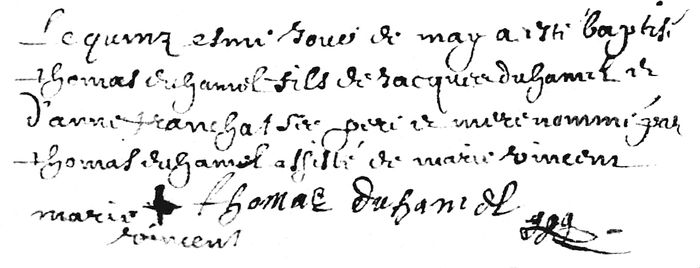 Le quinz esme Jour de may a esté baptisé
thomas duhamel fils de Jacques duhamel et
d'anne tranchat ses pere et mere nommé par
thomas duhamel assisté de marie vincent
marie + thomas duhamel
vincent